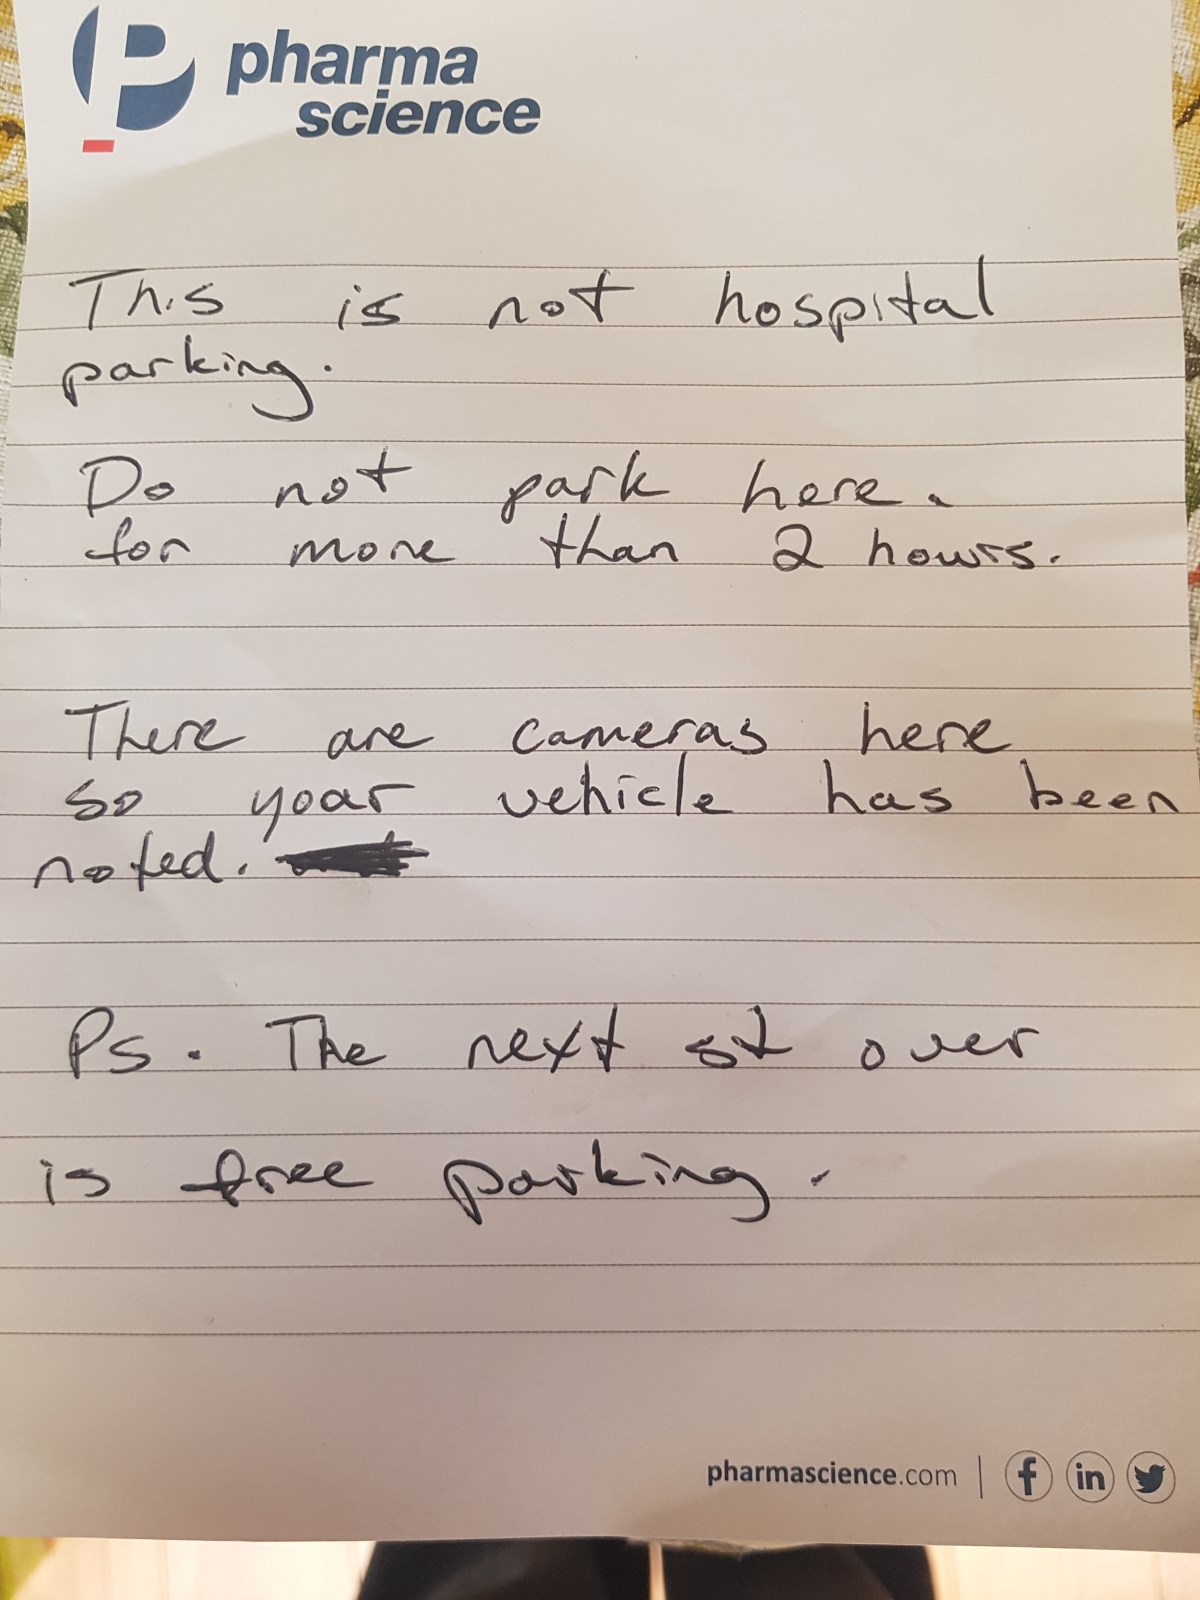 pharma
science
This is not hospital
parking.
Do not park here.
for more than 2 hours.
There are cameras here
so your vehicle has been
noted.
Ps. The next st over
is free parking.
pharmascience.com